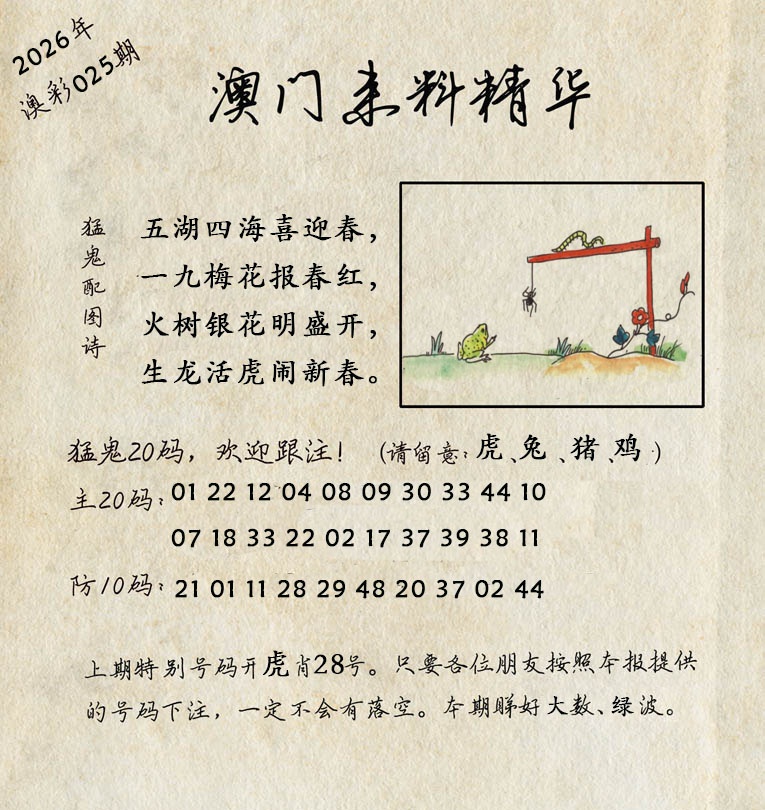 2026年
澳彩025期
澳门来料精华
猛鬼配图诗
五湖四海喜迎春，
一九梅花报春红，
火树银花明盛开，
生龙活虎闹新春。
猛鬼20码，欢迎跟注！（请留意：虎、兔、猪、鸡）
主20码：01 22 12 04 08 09 30 33 44 10
07 18 33 22 02 17 37 39 38 11
防10码：21 01 11 28 29 48 20 37 02 44
上期特别号码开虎肖28号。只要各位朋友按照本报提供
的号码下注，一定不会有落空。本期睇好大数、绿波。